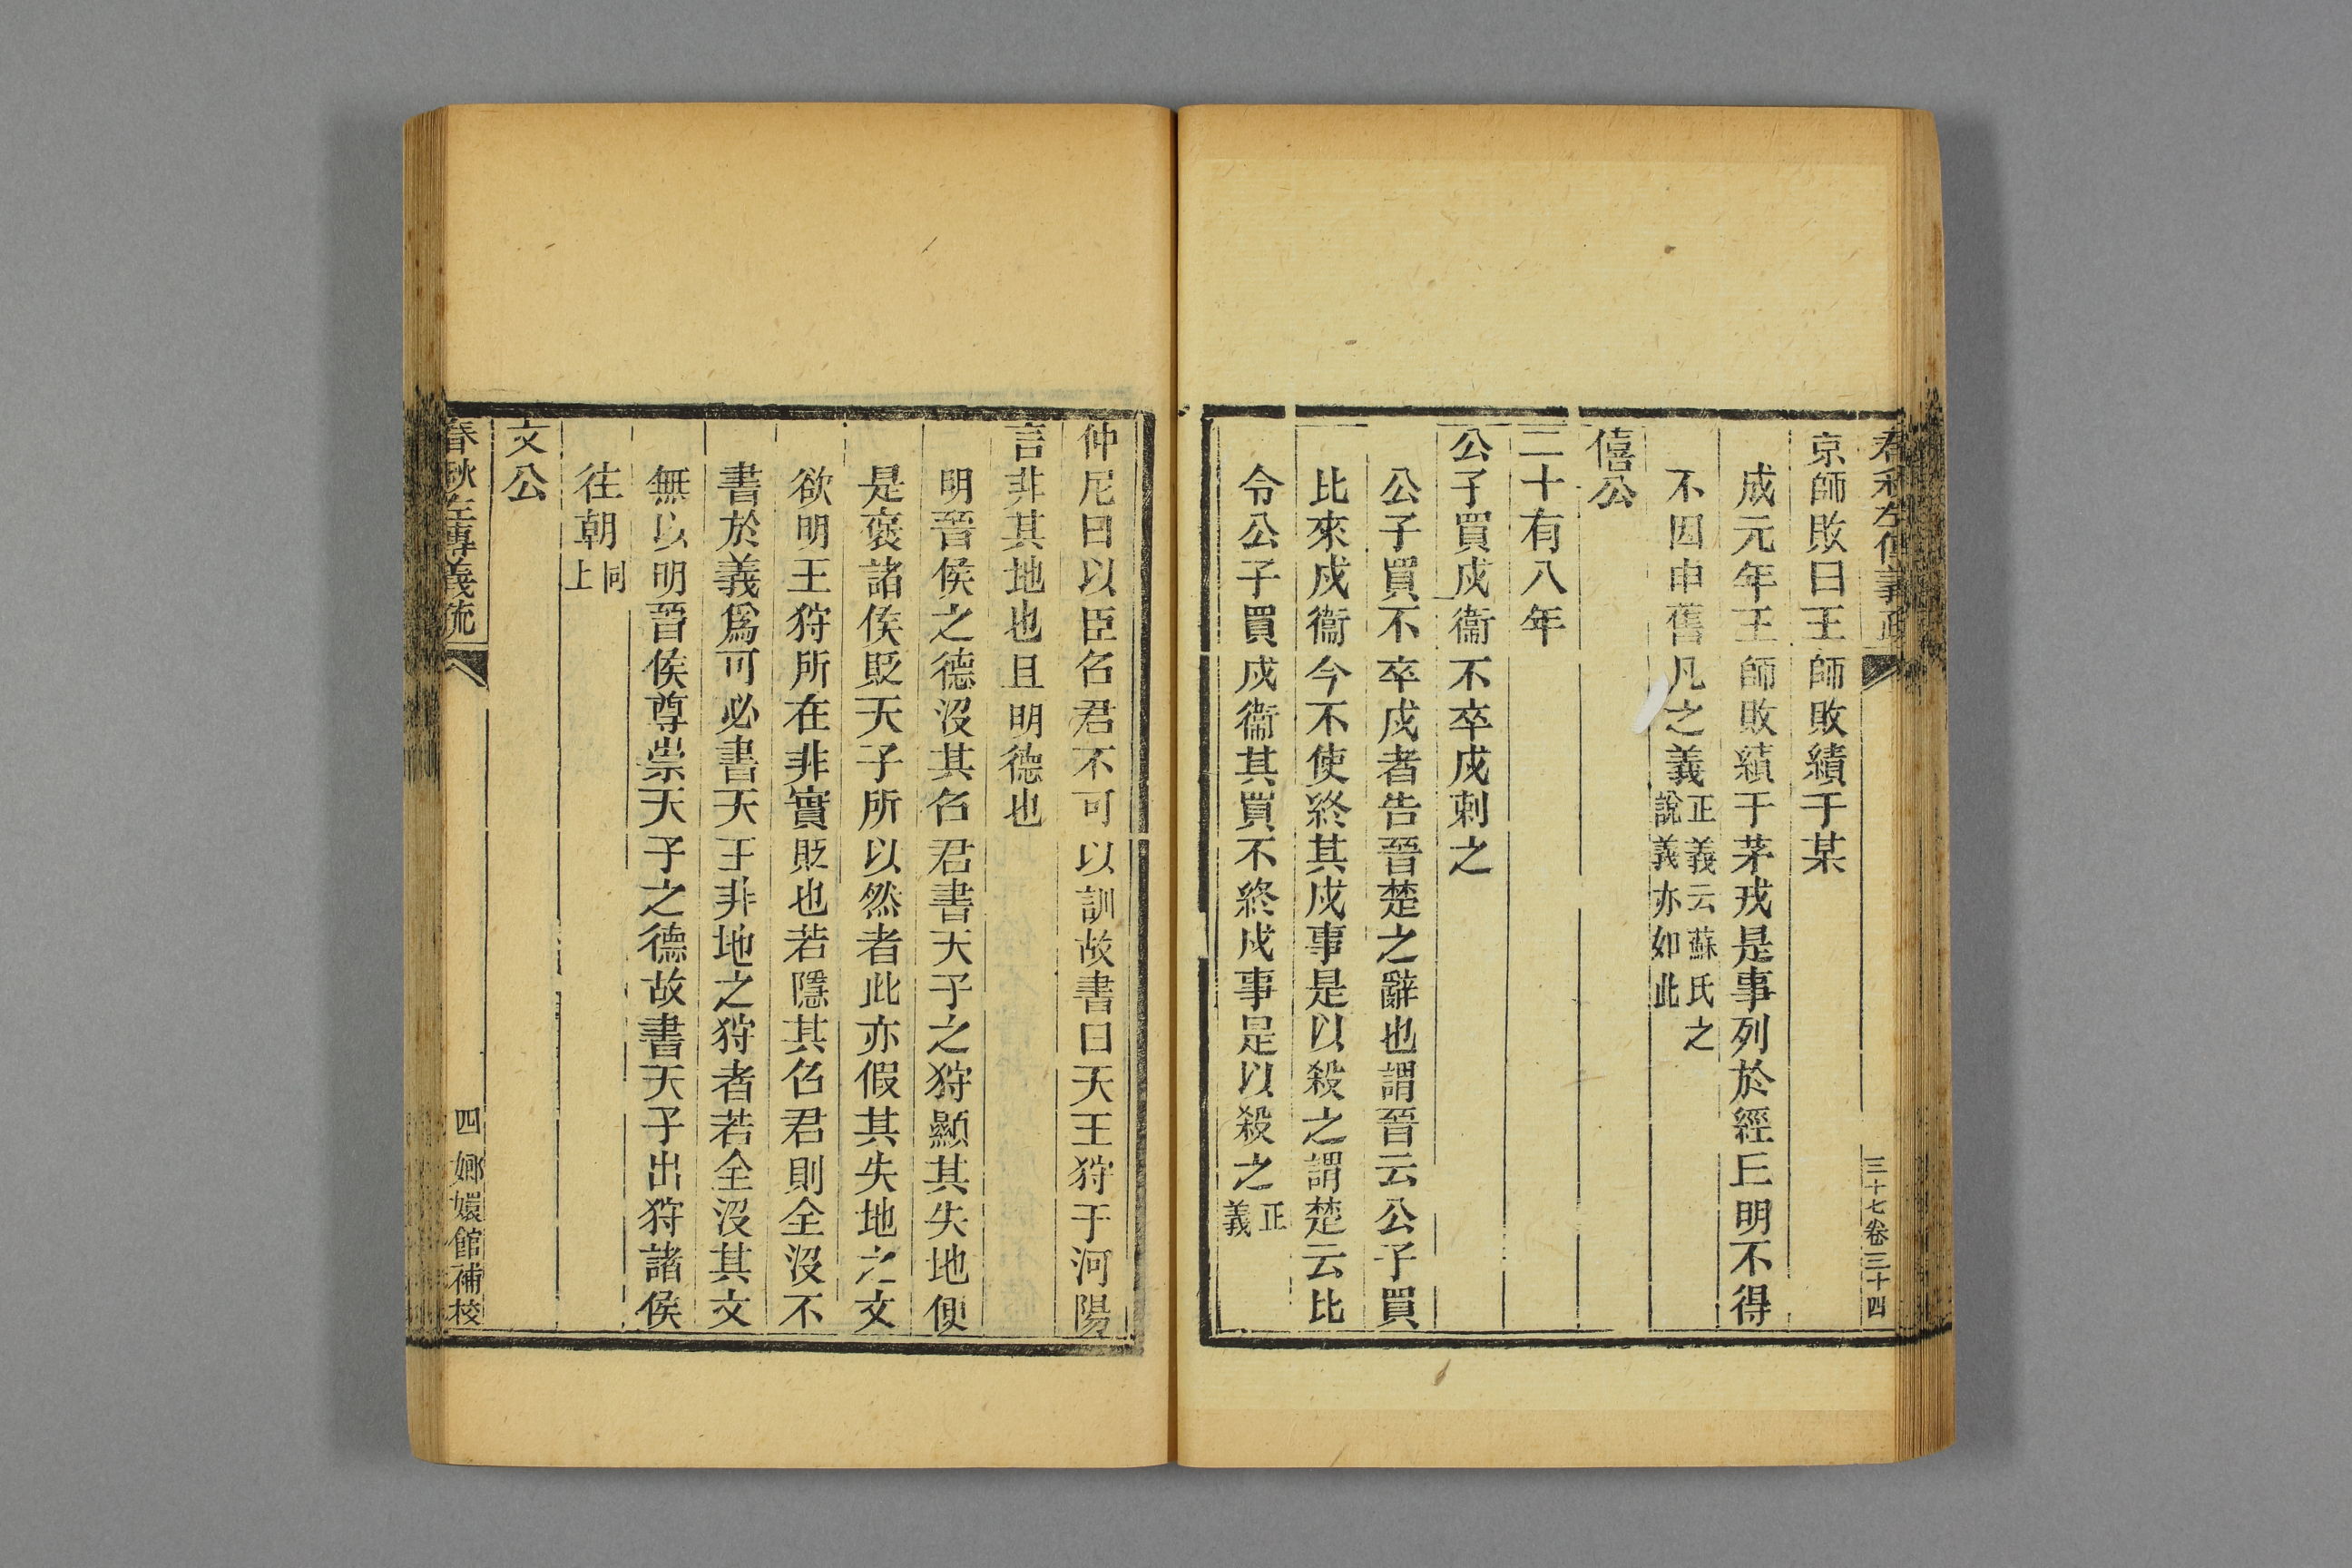 三十七卷三十四
京師敗曰王師敗績于某
成元年王師敗績于茅戎是事列於經上明不得
不因申舊凡之義正義云蘇氏之
說義亦如此
僖公
二十有八年
公子買戍衞不卒戍刺之
公子買不卒戍者告晉楚之辭也謂晉云公子買
比來戍衞今不使終其戍事是以殺之謂楚云比
令公子買戍衞其買不終戍事是以殺之正
義
仲尼曰以臣召君不可以訓故書曰天王狩于河陽
言非其地也且明德也
明晉侯之德沒其召君書天子之狩顯其失地便
是褒諸侯貶天子所以然者此亦假其失地之文
欲明王狩所在非實貶也若隱其召君則全沒不
書於義爲可必書天王非地之狩者若全沒其文
無以明晉侯尊崇天子之德故書天子出狩諸侯
往朝同
上
文公
春秋左傳義疏 四 嫏嬛館補校